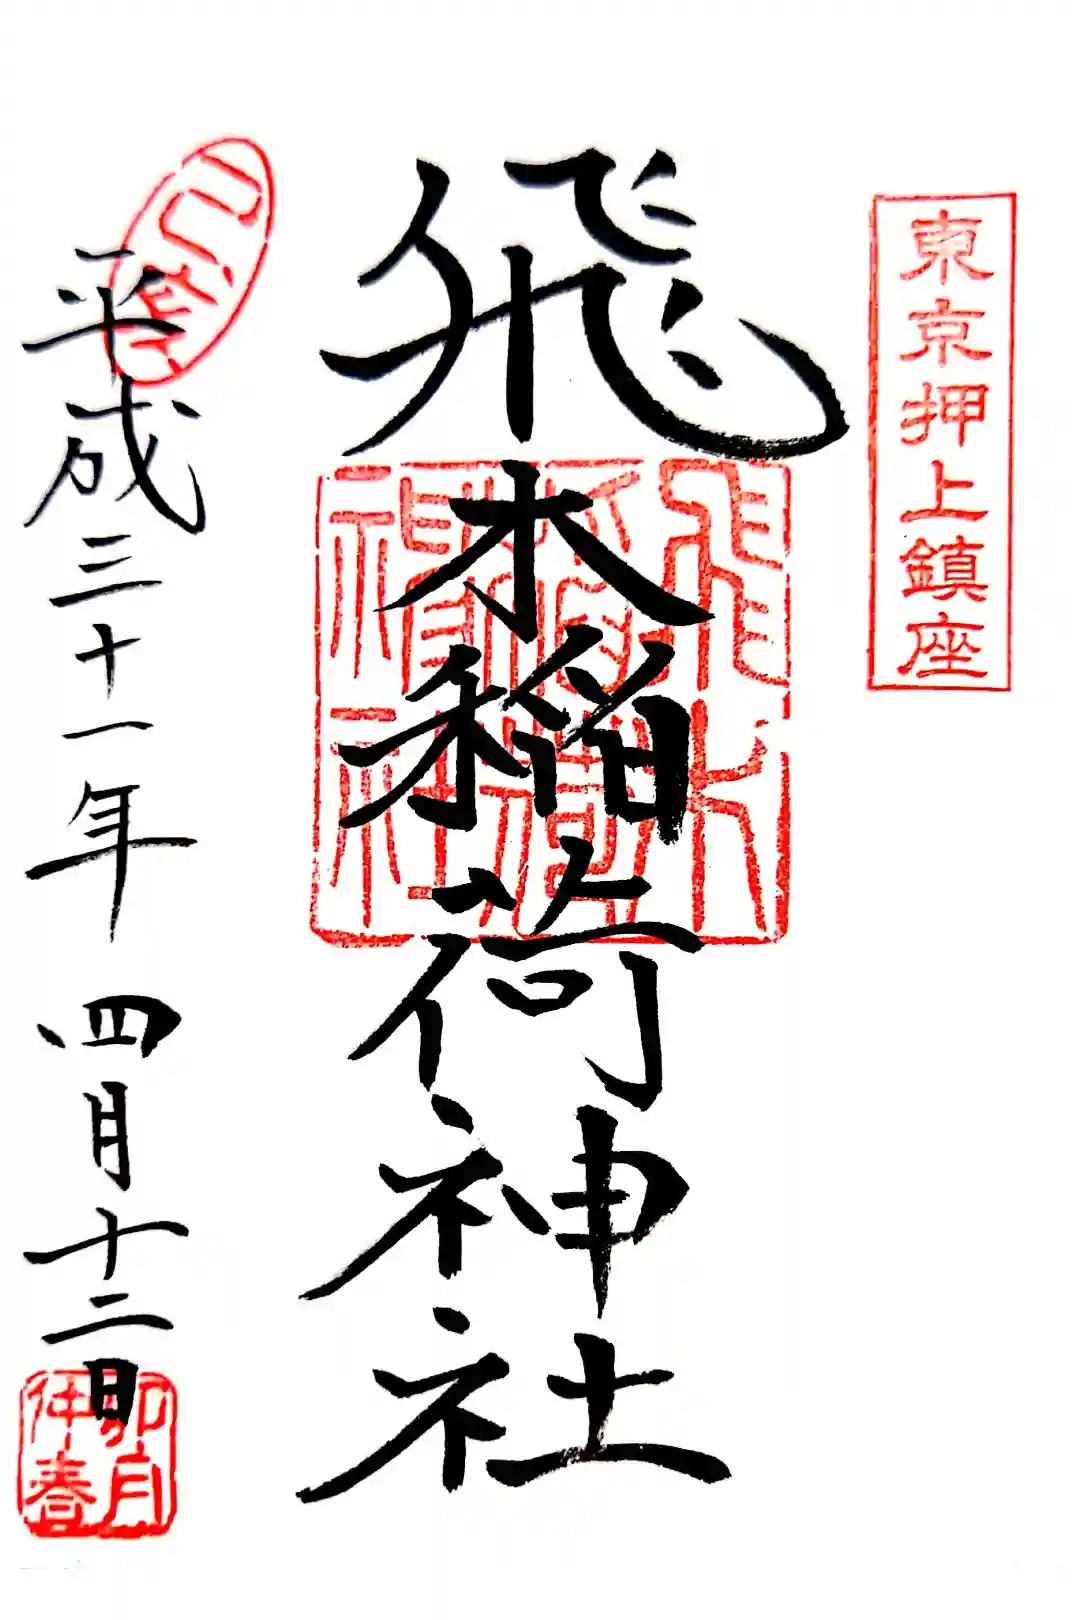 東京押上鎮座
飛木稲荷神社
飛木稲荷神社
平成三十一年 四月十二日
己亥
卯月
仲春